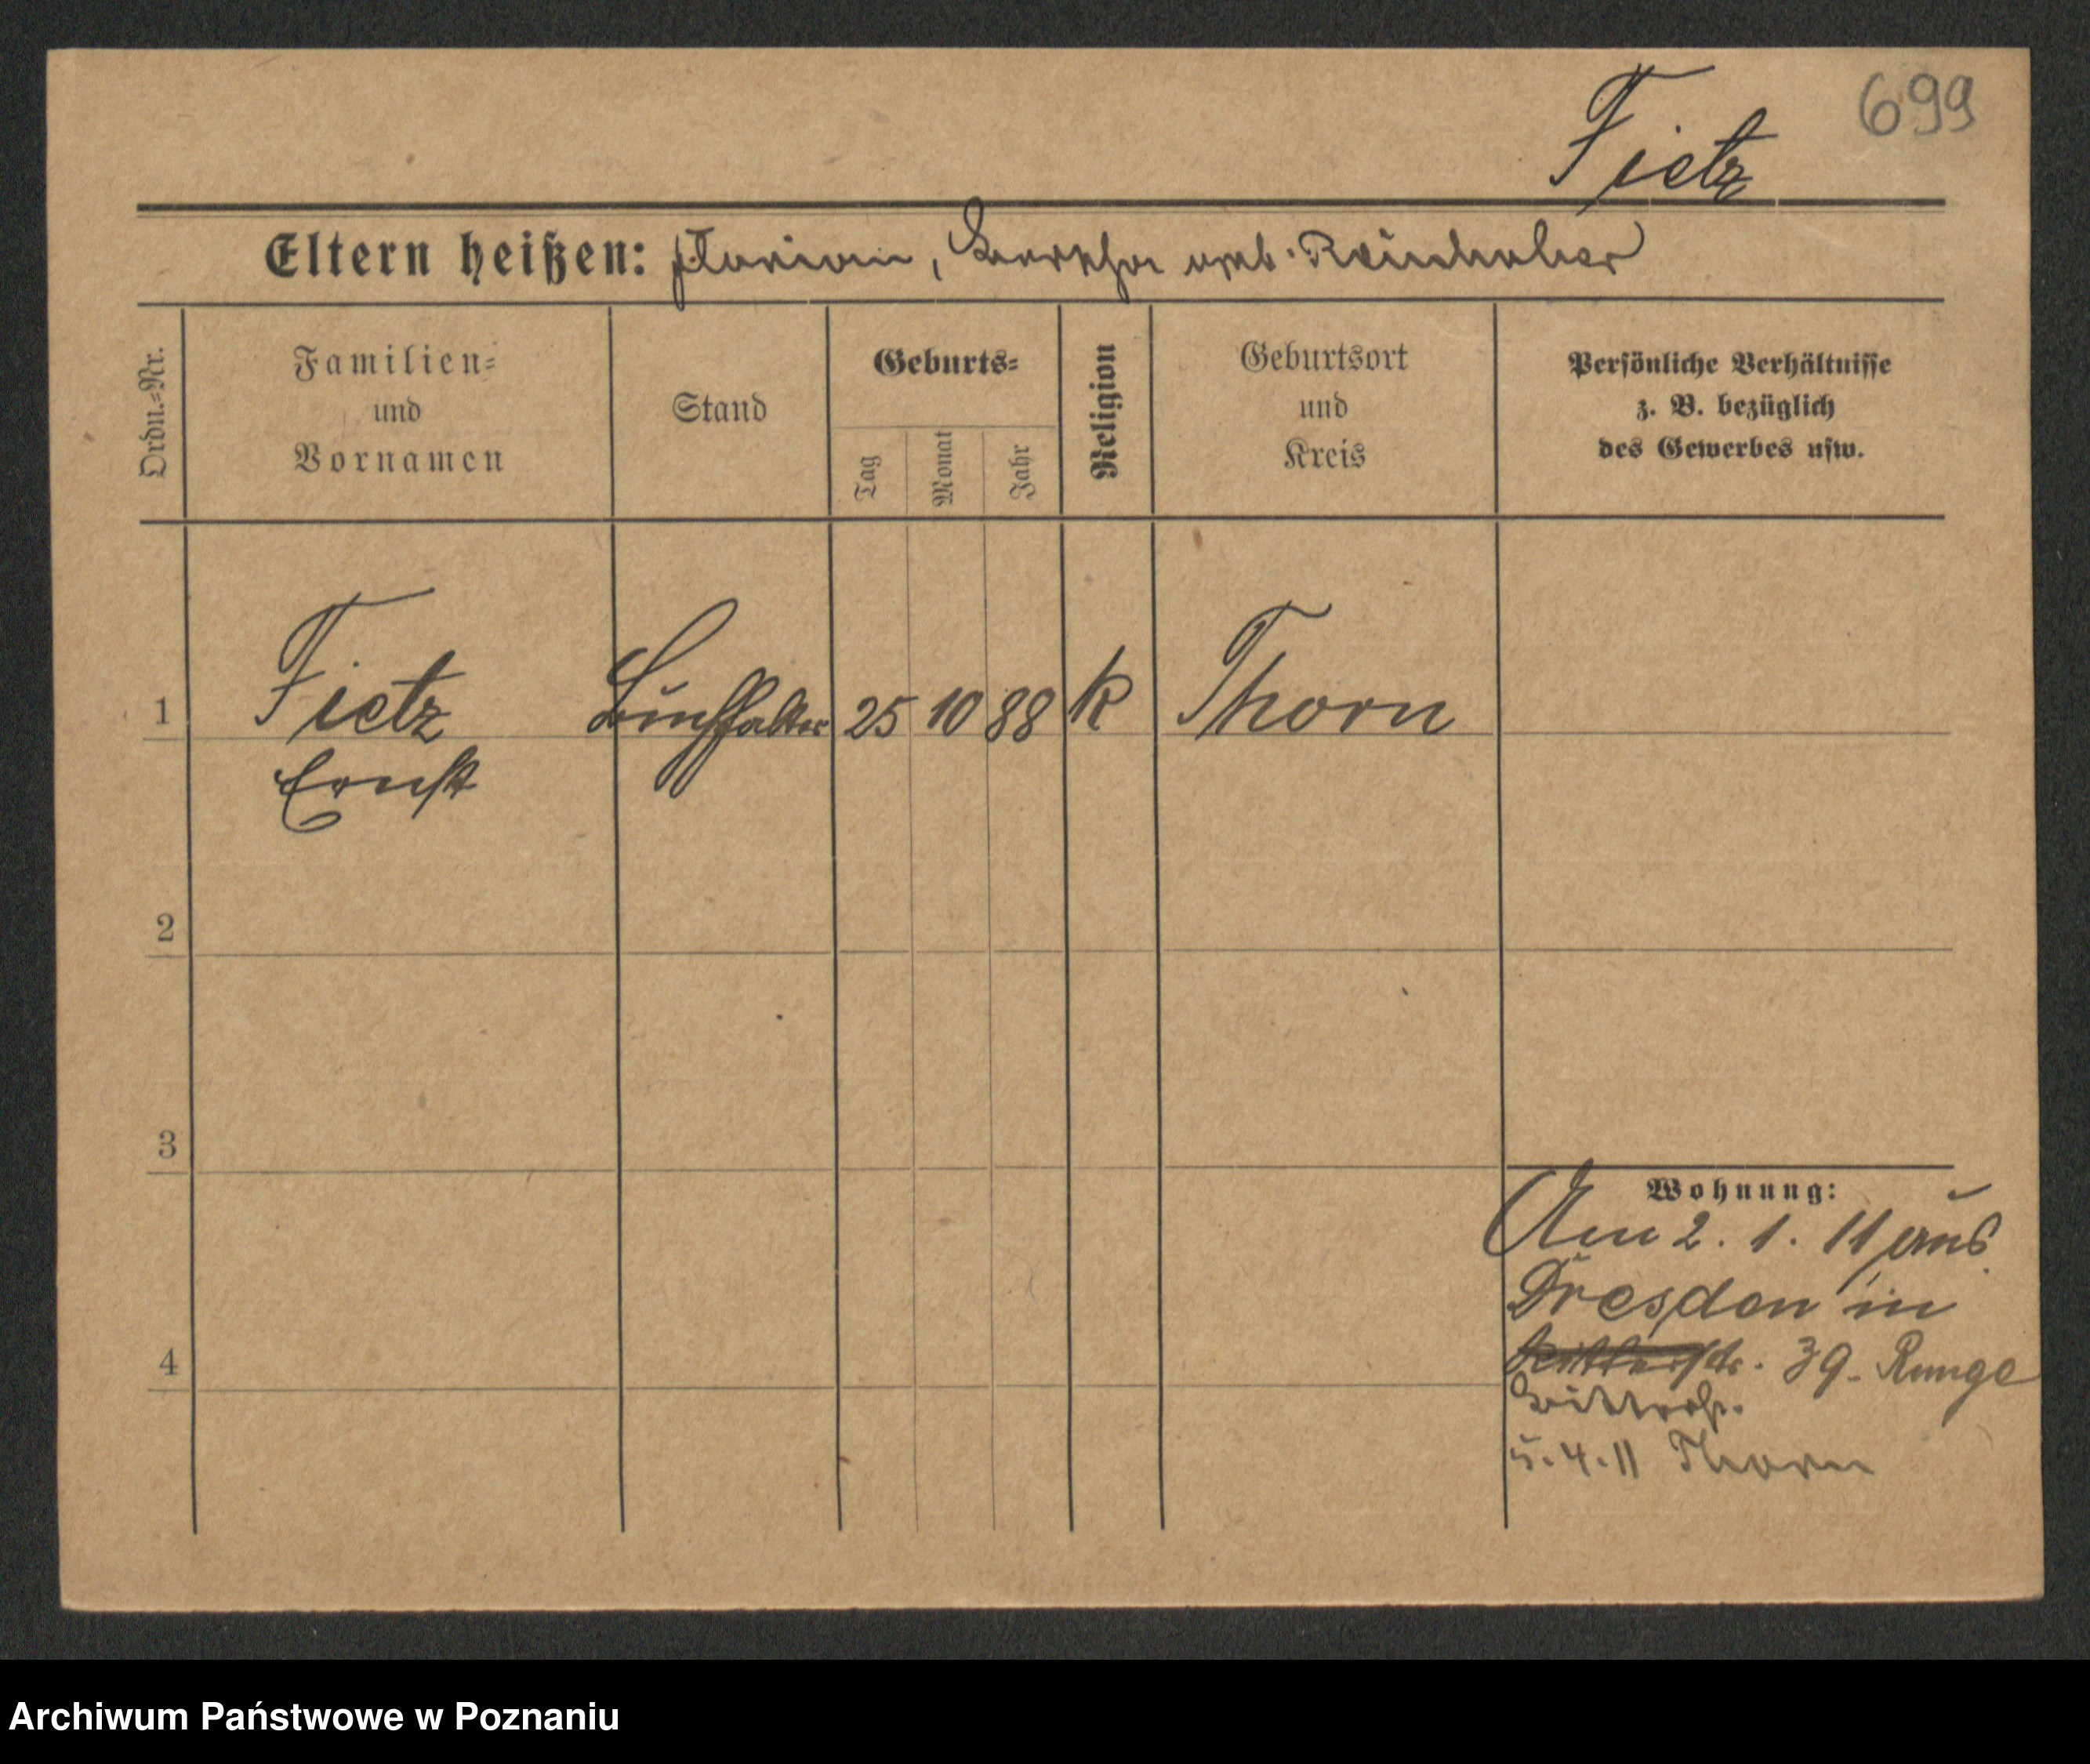 699
Fietz
Eltern heißen: Florian, Bertha geb. Reinholzer
Ordn.-Nr.
Familien-
und
Vornamen
Stand
Geburts-
Tag
Monat
Jahr
Religion
Geburtsort
und
Kreis
Persönliche Verhältnisse
z. B. bezüglich
des Gewerbes usw.
1 Fietz Buchhalter 25 10 88 k Thorn
Ernst
2
3
4
Wohnung:
Am 2. 1. 11 aus
Dresden in
39. Runge
5.4.11 Thorn
Archiwum Państwowe w Poznaniu